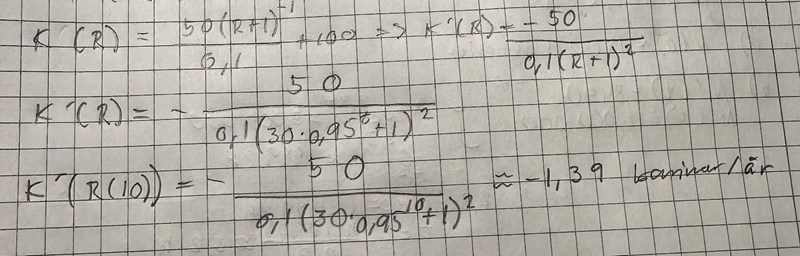 K (R) = 50(R+1)^-1 / 0,1 + 100 => K'(R) = -50 / 0,1(R+1)^2
K'(R) = - 50 / 0,1(30·0,95^0+1)^2
K'(R(10)) = - 50 / 0,1(30·0,95^10+1)^2 ≈ -1,39 kaniner/år